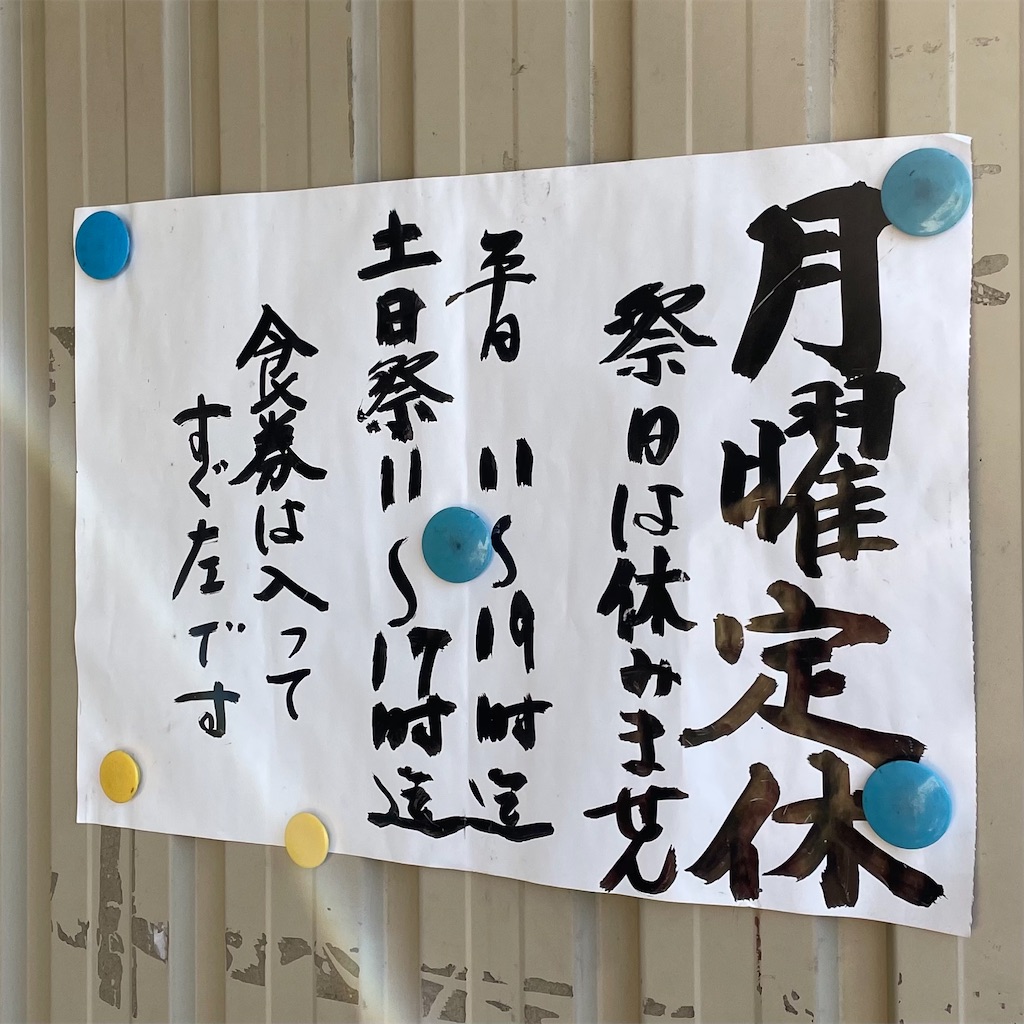 月曜定休
祭日は休みません
平日 11〜19時迄
土日祭11〜17時迄
食券は入って
すぐ左です